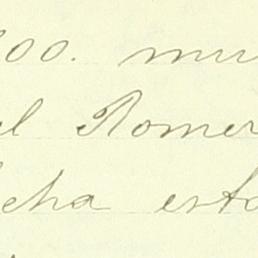 00. mu
el Romer
cha esta